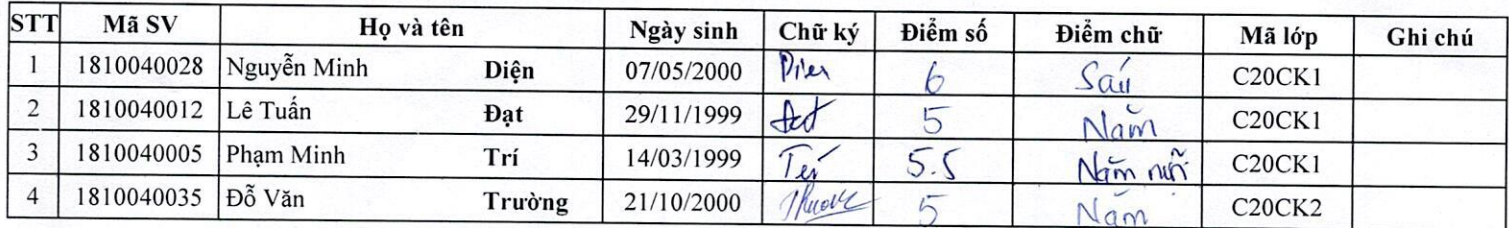 STT Mã SV Họ và tên Ngày sinh Chữ ký Điểm số Điểm chữ Mã lớp Ghi chú
1 1810040028 Nguyễn Minh Diện 07/05/2000 6 Sáu C20CK1
2 1810040012 Lê Tuấn Đạt 29/11/1999 Đạt 5 Năm C20CK1
3 1810040005 Phạm Minh Trí 14/03/1999 Trí 5.5 Năm C20CK1
4 1810040035 Đỗ Văn Trường 21/10/2000 5 Năm C20CK2